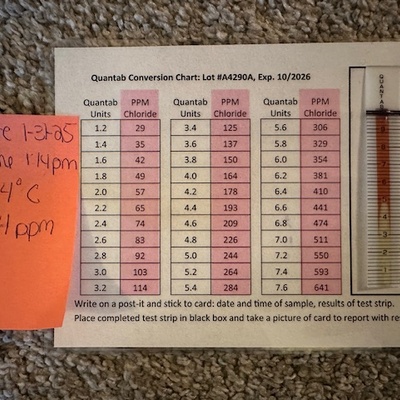 Quantab Conversion Chart: Lot #A4290A, Exp. 10/2026
Quantab Units PPM Chloride Quantab Units PPM Chloride Quantab Units PPM Chloride
1.2 29 3.4 125 5.6 306
1.4 35 3.6 137 5.8 329
1.6 42 3.8 150 6.0 354
1.8 49 4.0 164 6.2 381
2.0 57 4.2 178 6.4 410
2.2 65 4.4 193 6.6 441
2.4 74 4.6 209 6.8 474
2.6 83 4.8 226 7.0 511
2.8 92 5.0 244 7.2 550
3.0 103 5.2 264 7.4 593
3.2 114 5.4 284 7.6 641
Write on a post-it and stick to card: date and time of sample, results of test strip.
Place completed test strip in black box and take a picture of card to report with re
1-31-25
1:14pm
4° C
ppm
QUANTAB